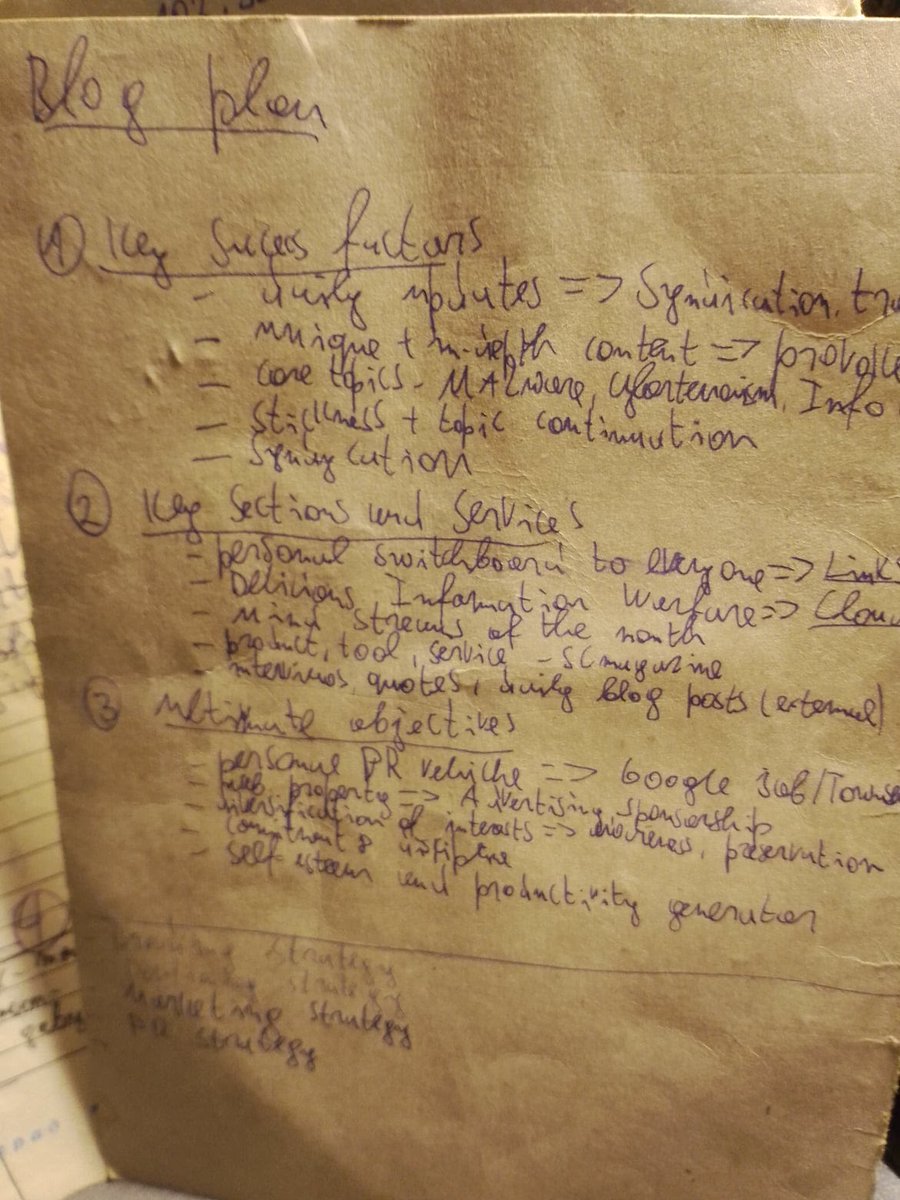 Blog plan
① Key Success factors
- daily updates => Syndication, tra
- unique + in-depth content => provoke
- core topics - MALware, Cyberterrorism, Info
- Stickness + topic continuation
- Syndication
② Key Sections and Services
- personal switchboard to everyone => Links
- Delicious Information Warfare => Clou
- Mind streams of the month
- product, tool, service - SCmagazine
- interviews, quotes, daily blog posts (external)
③ Ultimate objectives
- personal PR vehicle => Google Job/
- Web property => Advertising, sponsorship
- diversification of interests => awareness, preservation
- commitment &
- self esteem and productivity generation
④
strategy
strategy
Marketing strategy
PR strategy